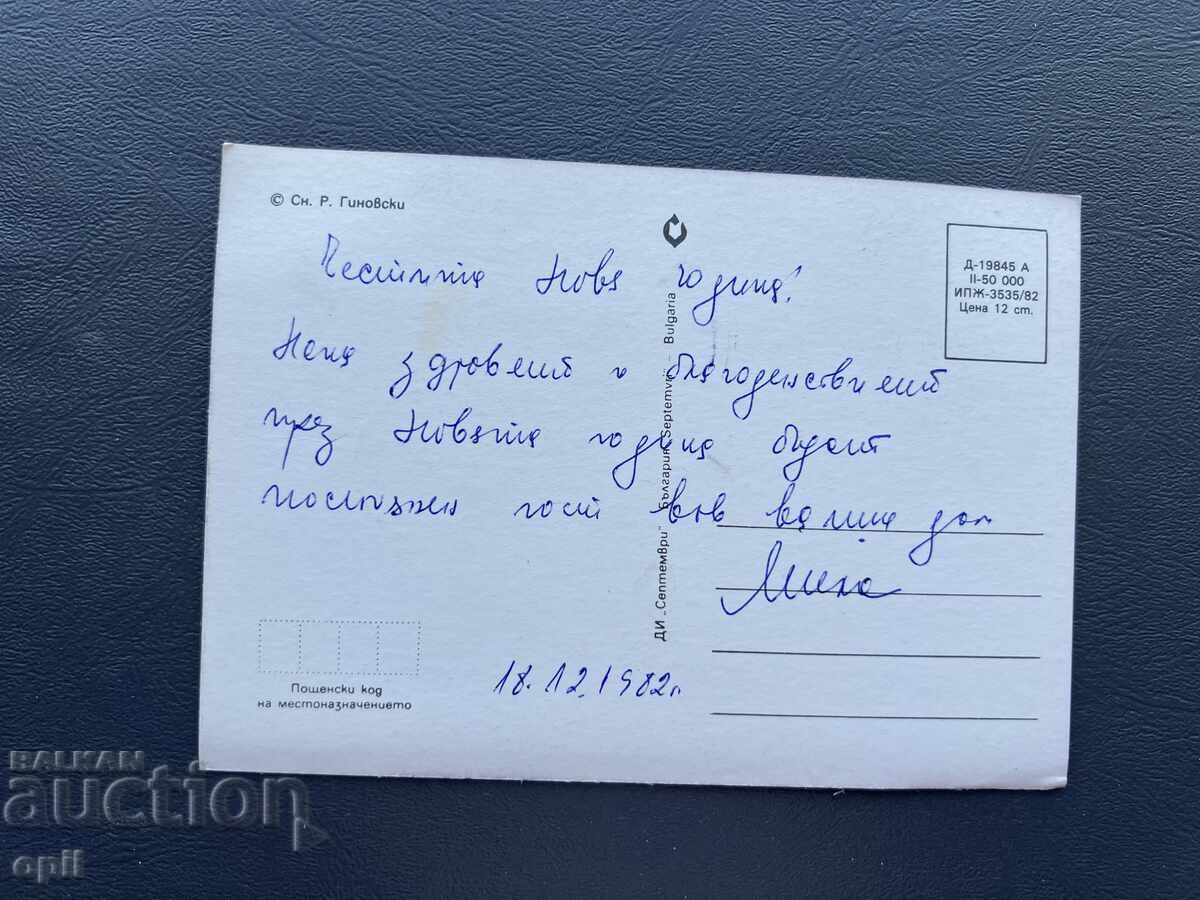 © Сн. Р. Гиновски
Честита Нова година!
Нека здравето и благоденствието
през Новата година бъдат
постоянен гост във вашия дом
18.12.1982г.
Пощенски код
на местоназначението
ДИ „Септември“ – България Septemvri – Bulgaria
Д-19845 А
II-50 000
ИПЖ-3535/82
Цена 12 ст.
BALKAN
auction
opll